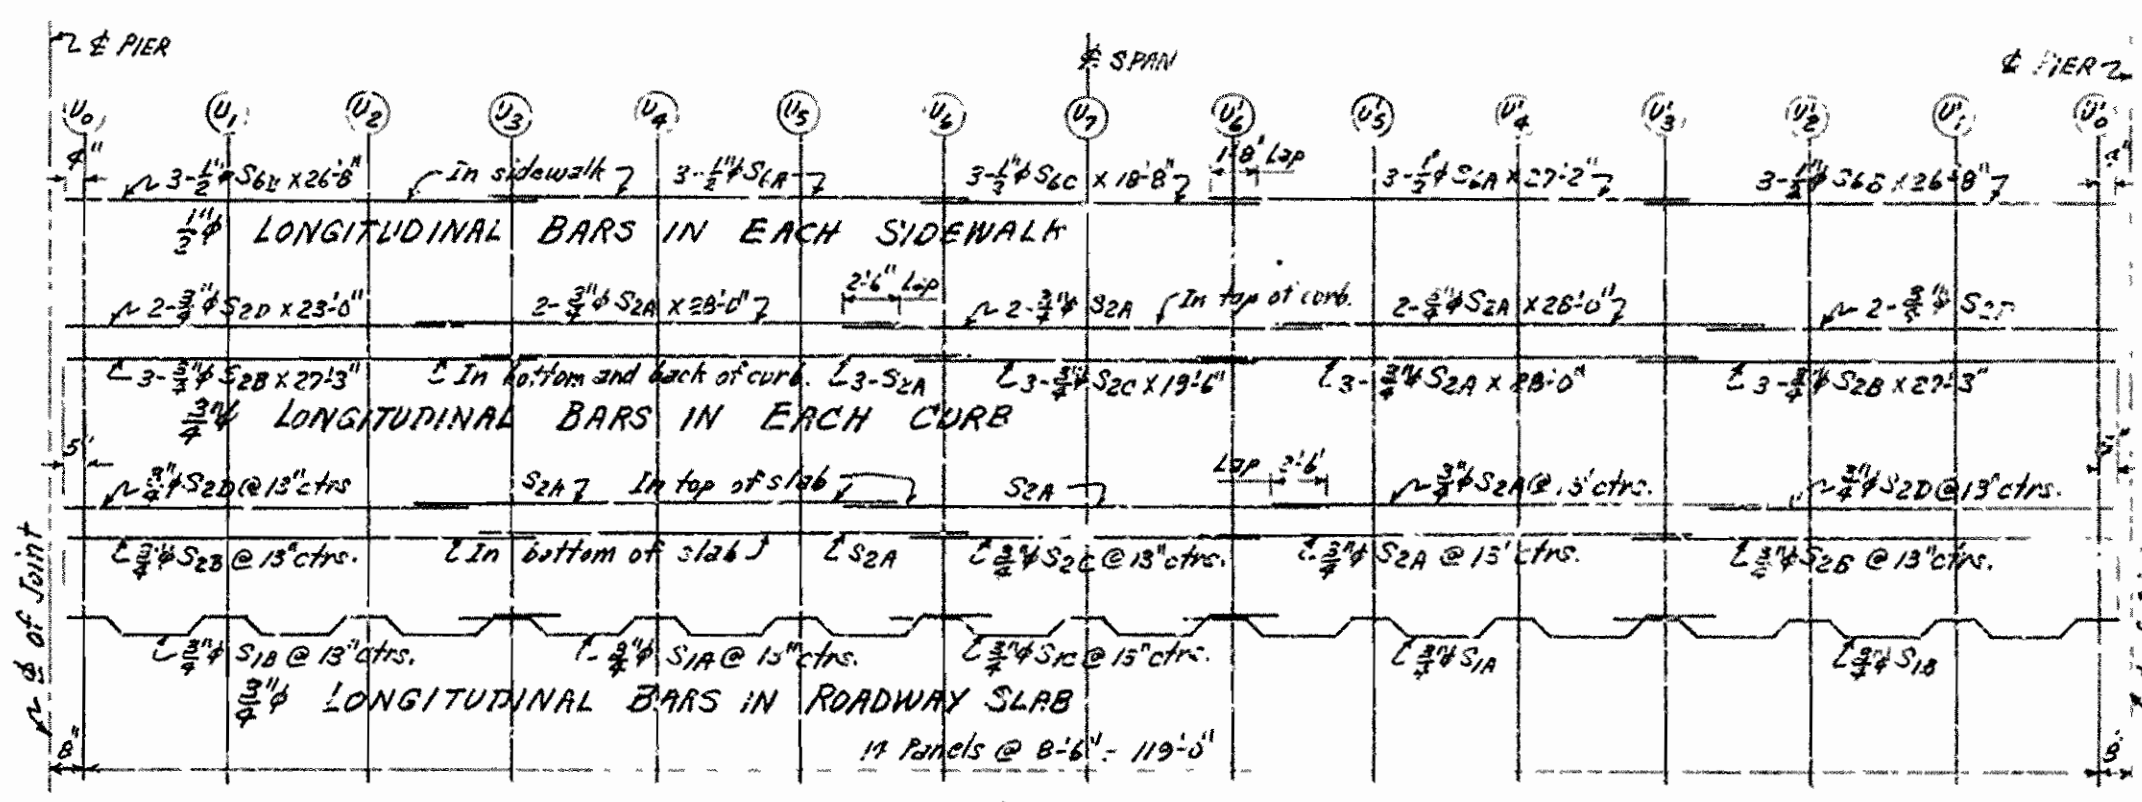 ℄ PIER
℄ SPAN
℄ PIER
U0 U1 U2 U3 U4 U5 U6 U7 U'6 U'5 U'4 U'3 U'2 U'1 U'0
4"
3-1/2"ϕ S6B x 26'-8"
In sidewalk
3-1/2"ϕ S6A
3-1/2"ϕ S6C x 18'-8"
1'-8" Lap
3-1/2"ϕ S6A x 27'-2"
3-1/2"ϕ S6B x 26'-8"
1/2"ϕ LONGITUDINAL BARS IN EACH SIDEWALK
2-3/4"ϕ S2D x 23'-0"
2-3/4"ϕ S2A x 28'-0"
2'-6" Lap
2-3/4"ϕ S2A
In top of curb.
2-3/4"ϕ S2A x 28'-0"
2-3/4"ϕ S2D
3-3/4"ϕ S2B x 27'-3"
In bottom and back of curb.
3-S2A
3-3/4"ϕ S2C x 19'-6"
3-3/4"ϕ S2A x 28'-0"
3-3/4"ϕ S2B x 27'-3"
3/4"ϕ LONGITUDINAL BARS IN EACH CURB
5"
3/4"ϕ S2D @ 13" ctrs
S2A
In top of slab
S2A
Lap 2'-6"
3/4"ϕ S2A @ 13" ctrs.
3/4"ϕ S2D @ 13" ctrs.
3/4"ϕ S2B @ 13" ctrs.
In bottom of slab
S2A
3/4"ϕ S2C @ 13" ctrs.
3/4"ϕ S2A @ 13" ctrs.
3/4"ϕ S2B @ 13" ctrs.
℄ of Joint
3/4"ϕ S1B @ 13" ctrs.
3/4"ϕ S1A @ 13" ctrs.
3/4"ϕ S1C @ 13" ctrs.
3/4"ϕ S1A
3/4"ϕ S1B
3/4"ϕ LONGITUDINAL BARS IN ROADWAY SLAB
8"
14 Panels @ 8'-6" = 119'-0"
8"